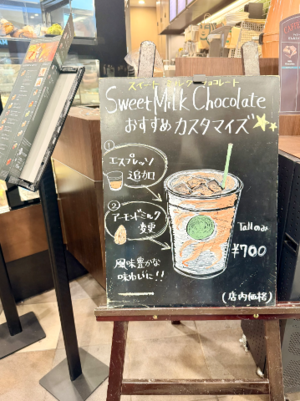 スイートミルクチョコレート
Sweet Milk Chocolate
おすすめカスタマイズ
①
エスプレッソ
追加
②
アーモンドミルク
変更
風味豊かな
味わいに!!
Tall
¥700
(店内価格)